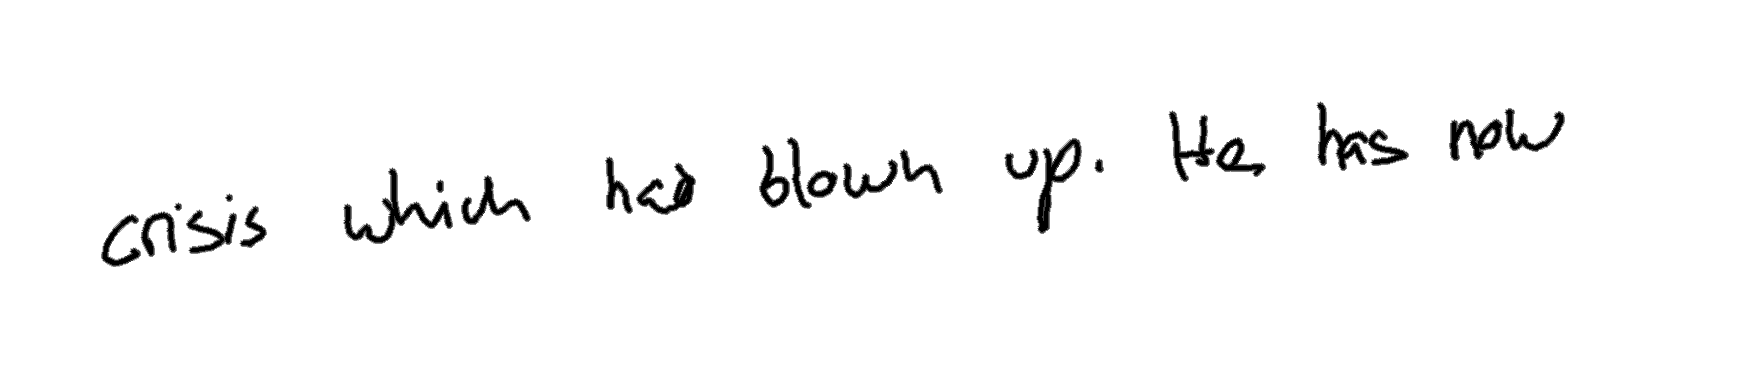 crisis which has blown up. He has now